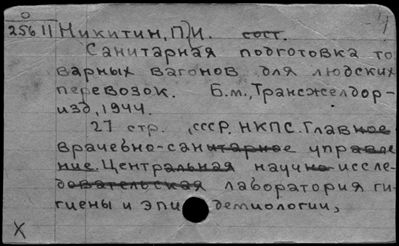 О
25611 Никитин, П.И. сост.
Санитарная подготовка то
варных вагонов для людских
перевозок. Б.м., Трансжелдор-
изд, 1944.
27 стр. (СССР. НКПС. Главное
врачебно-санитарное управле
ние. Центральная научно иссле-
довательская лаборатория ги-
гиены и эпидемиологии,
X